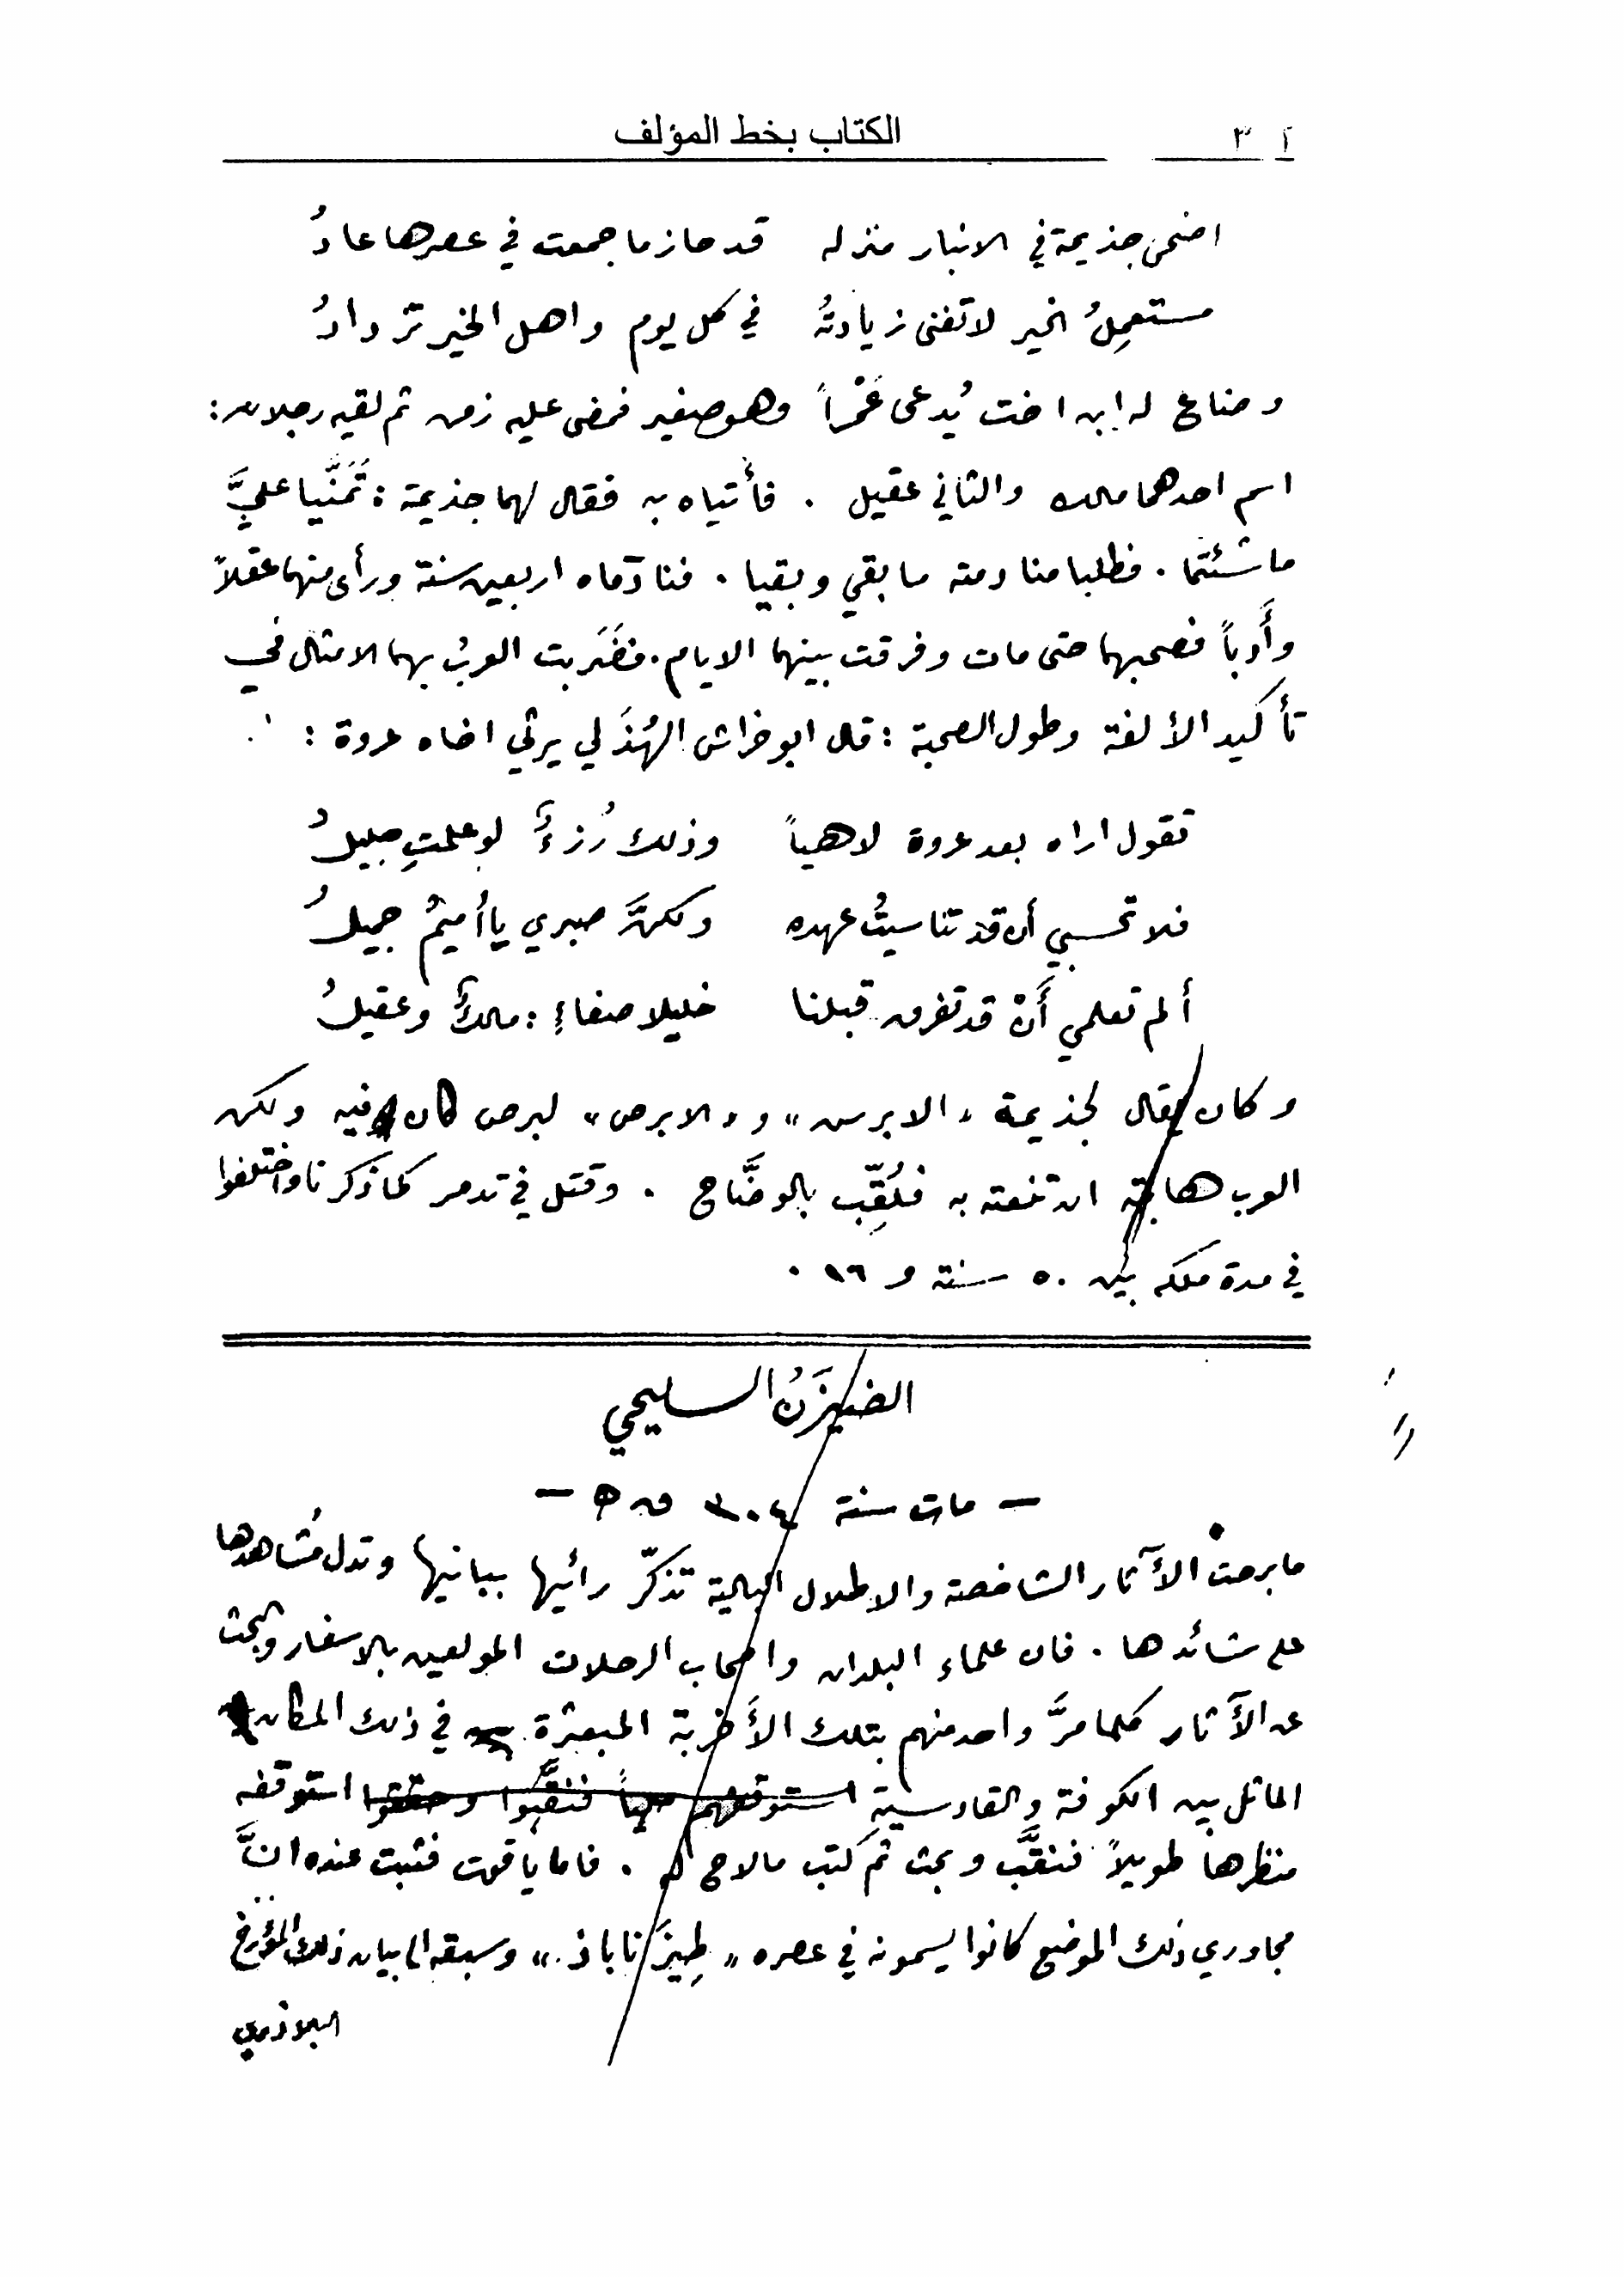 الكتاب بخط المؤلف
اضحى جذيمة في الانبار منزله قد حاز ما جمعت في عصرها عادُ
مستعمِلُ الخير لا تفنى زيادتُه في كل يوم واهل الخير تزدادُ
وضاع له ابن اخت يُدعى عَمْراً وهو صغير فمضى عليه زمن ثم لقيه رجلان:
اسم احدهما مالك والثاني عقيل . فأتياه به فقال لهما جذيمة : تَمَنَّيا عليَّ
ما شئتما . فطلبا منادمته ما بقي وبقيا . فنادَماه اربعين سنة ورأى منهما عقلاً
وأَدباً فصحبهما حتى مات وفرقت بينهما الايام . فضَرَبت العربُ بهما الامثال في
تأكيد الألفة وطول الصحبة : قال ابو خراش الهُذَلي يرثي اخاه عروة :
تقول اراه بعد عروة لاهياً وذلك رُزءٌ لو علمتِ جليلُ
فلا تحسبي أن قد تناسيتُ عهده ولكنَّ صبري يا أُميمُ جميلُ
ألم تعلمي أَنْ قد تفرق قبلنا خليلا صفاءٍ : مالكٌ وعقيلُ
وكان يقال لجذيمة «الابرش» و «الابرص» لبرص كان فيه ولكن
العرب هابته ان تنعته به فلُقِّب بالوضَّاح . وقتل في تدمر كما ذكرنا واختلفوا
في مدة ملكه بين ٥٠ سنة و ١٦ .
الضيزَنُ السليحي
— مات سنة ٣٠٤ ق ه —
ما برحت الآثار الشاخصة والاطلال البالية تذكّر رائيها ببانيها وتدل مُشاهدها
على شائدها . فان علماء البلدان واصحاب الرحلات المولعين بالاسفار والبحث
عن الآثار كلما مرَّ واحد منهم بتلك الأَخربة المبعثرة في ذلك المكان
الماثل بين الكوفة والقادسيةِ استوقفهم ملياً فنقَّبوا وحققوا استوقفه
منظرها طويلاً فنقَّب وبحث ثم كتب ما لاح له . فاما ياقوت فثبت عنده انَّ
مجاوري ذلك الموضع كانوا يسمونه في عصره «طِيزَناباذ» وسبقه الى بيان ذلك المؤرخ
البلاذري